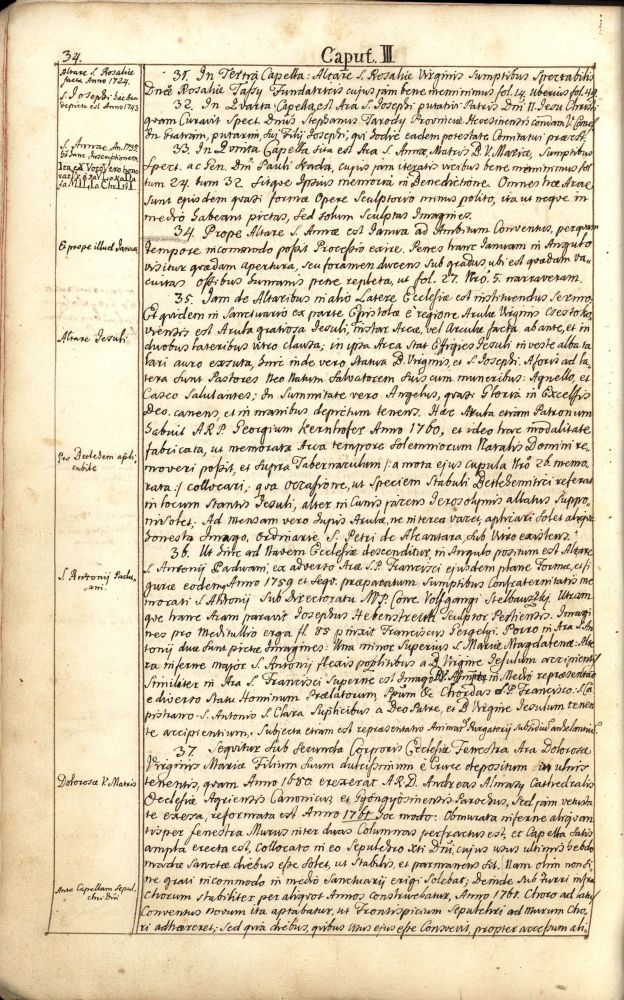 34.
Caput. III
Altare S. Rosaliæ
facta Anno 1724.
S. Josephi
depicta est Anno 1743
S. Annæ
Inscriptionem
E prope illud Janua
Altare Jesuli
S. Antonij Padu„
ani.
Dolorosæ V. Matris
Ante Capellam Sepul„
chri Dni
31. In Tertia Capella: Altare S. Rosaliæ Virginis Sumptibus Spectabilis
Dnæ Rosaliæ Tassy Fundatricis cujus jam bene meminimus fol. 14. uberius fol. 49.
32. In Quarta Capella, est Ara S. Josephi putativi Patris Dni N. Jesu Christi
quam Curavit Spect. Dnus Stephanus Tarody Provinciæ Hevesiensis
in Gratiam, putarim, sui Filij Josephi, qui hodie eadem potestate Comitatui præest.
33. In Qvinta Capella sita est Ara S. Annæ, Matris B. V. Mariæ, Sumptibus
Spect. ac Gen. Dni Pauli Rada, cujus jam iteratis vicibus bene meminimus fol.
tum 24. tum 32. Sitque Ipsius memoria in Benedictione. Omnes hæ Aræ
sunt ejusdem quasi formæ Opere Sculptorio minus polito, ita ut neque in
medio habeant pictas, sed solum Sculptas Imagines.
34. Prope Altare S. Annæ est Janua ad Ambitum Conventus, per quam
tempore incommodo possit Processio exire. Penes hanc Januam in Angulo
visitur quædam apertura, seu foramen ducens sub gradus ubi est quædam va„
cuitas ossibus humanis pene repleta, ut fol. 27. Nro 5. narraveram.
35. Jam de Altaribus in alio Latere Ecclesiæ est instituendus Sermo.
Et quidem in Sanctuario ex parte Epistolæ e regione Arulæ Virginis Czestoko„
viensis est Arula gratiosa Jesuli, instar Arcæ, vel Arculæ facta ab ante, et in
duobus lateribus vitro clausa; in ipsa Arca Stat Effigies Jesuli in veste alba ta„
lari auro exsuta, hinc inde vero Statua B. Virginis, et S. Josephi. A foris ad la„
tera sunt Pastores Neo Natum Salvatorem suis cum muneribus: Agnello, et
Caseo Salutantes; In Summitate vero Angelus, quasi Gloria in Excelsis
Deo canens, et in manibus depictum tenens. Hæc Arula etiam Patronum
habuit A.R.P. Georgium Kernhofer Anno 1760, et ideo hac modalitate
fabricata, ut memorata Arca tempore Solemniorum Natalis Domini re„
moveri possit, et supra Tabernaculum /: a mota ejus cupula Nro 26. memo„
rata :/ collocari; qua occasione, ut Speciem Stabuli Bethlehemitici referat
in locum Stantis Jesuli, alter in Cunis jacens Jerosolymis allatus Suppo„
ni solet. Ad mensam vero hujus Arulæ, ne interea vacet, applicari solet aliqua
honesta Imago, ordinarie S. Petri de Alcantara, sub Vitro existens.
36. Ut hinc ad Navem Ecclesiæ descenditur, in Angulo positum est Altare
S. Antonij Padvani, ex adverso Aræ S. P. Francisci ejusdem plane Formæ, et fi„
guræ eodem Anno 1759 et seqv. præparatum Sumptibus Confraternitatis me„
morati S. Antonij Sub Directoratu
que hanc Aram paravit Josephus Hebenstreith Sculptor Pestiensis. Imagi„
nes pro Meditullio erga fl. 85 pinxit Franciscus Gergelyi. Porro in Ara S. An„
tonij duæ sunt pictæ imagines: Una minor Superius S. Mariæ Magdalenæ: Alte„
ra inferne major S. Antonij flexis poplitibus a B. Virgine Jesulum accipientis
Similiter in Ara S. Francisci Superne est Imago in Medio representatio
e diverso Statu Hominum Prælatorum, & Chordas a S. P. Francisco. S. Ca„
pistrano. S. Antonio S. Clara Supplicibus a Deo Patre, et B. Virgine Jesulum tenen„
te accipientium, Subjecta etiam est representatio Animarum Purgatorij
37. Sequitur sub secunda Corporis Ecclesiæ Fenestra Ara Dolorosæ
Virginis Mariæ Filium Suum dulcissimum e Cruce depositum in ulnis
tenentis, quam Anno 1680 erexerat A.R.D. Andreas Almasy Cathedralis
Ecclesiæ Agriensis Canonicus, et Gyöngyösinensis Parochus, Sed jam vetusta
te exesa, reformata est Anno 1761 hoc modo: Obmurata inferne aliquan„
tisper fenestra Murus inter duas Columnas perfractus est, et Capella satis
ampla erecta est, collocato in eo Sepulchro Xti Dni, cujus usus ultimis hebdo„
madæ Sanctæ diebus esse solet, ut Stabilis, et parmanens sit. Nam olim non si„
ne gravi incommodo in medio Sanctuarij erigi solebat; Deinde sub Turri infra
Chorum stabiliter per aliquot Annos construebatur, Anno 1761. Choro ad latus
Conventus novum ita aptabatur, ut Frontispicium Sepulchri ad Murum Cho„
ri adhæreret; Sed quia diebus, quibus Usus ejus esse consuevit, propter accessum ali„